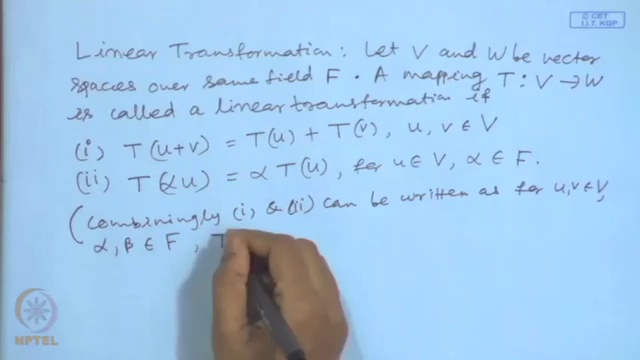 © CET
I.I.T. KGP
Linear Transformation: Let V and W be vector
spaces over same field F. A mapping T: V → W
is called a linear transformation if
(i) T(u+v) = T(u) + T(v), u, v ∈ V
(ii) T(αu) = α T(u), for u ∈ V, α ∈ F.
(Combiningly (i) & (ii) can be written as for u, v ∈ V,
α, β ∈ F, T
NPTEL